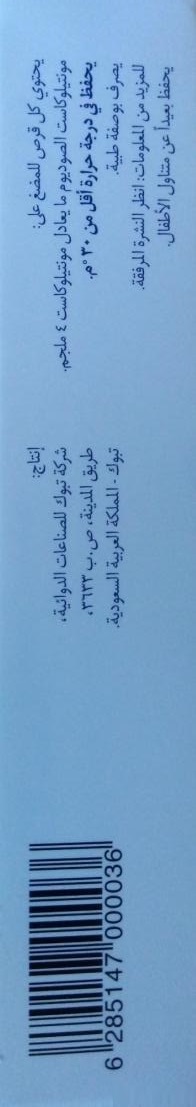 يحتوي كل قرص للمضغ على:
مونتيلوكاست الصوديوم ما يعادل مونتيلوكاست ٤ ملجم.
يحفظ في درجة حرارة أقل من ٣٠ °م.
يصرف بوصفة طبية.
للمزيد من المعلومات: انظر النشرة المرفقة.
يحفظ بعيداً عن متناول الأطفال.
إنتاج:
شركة تبوك للصناعات الدوائية،
طريق المدينة، ص.ب ٣٦٣٣،
تبوك - المملكة العربية السعودية.
6 285147 000036